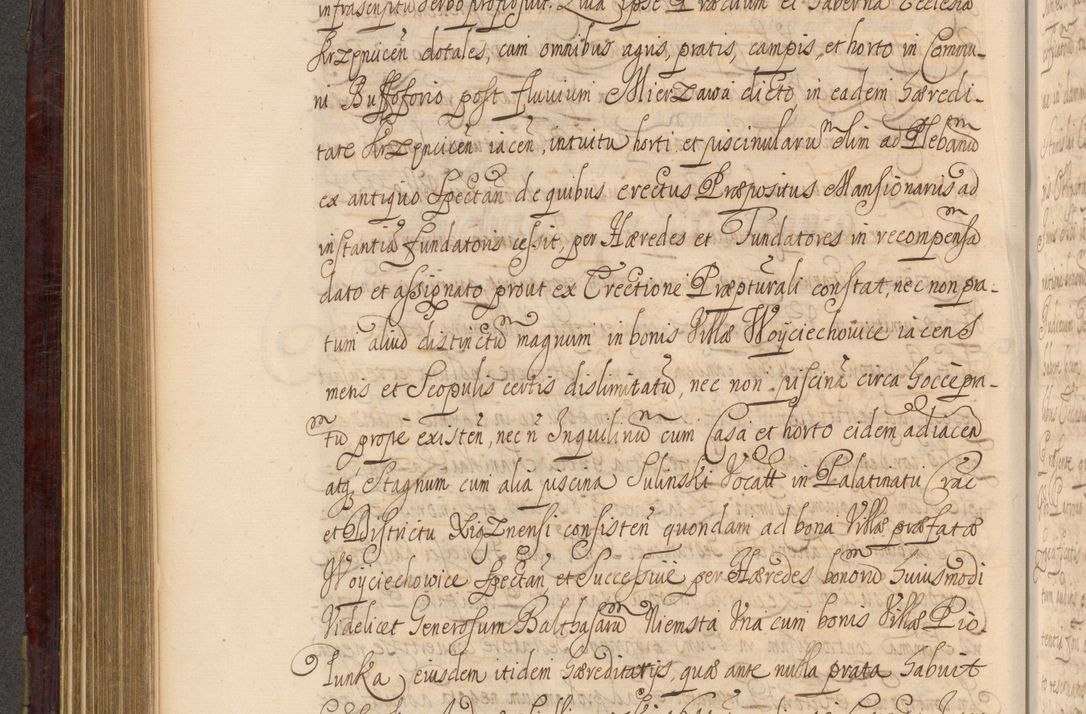 infrascriptu Verbo proposuit. Quia ipse Prædium et Taberna Ecclesiæ
KrzZęnucen̄ dotales, cum omnibus agris, pratis, campis, et horto in Commu-
ni Buffoforio post fluvium MierZawa dicto in eadem Hæredi-
tate KrZęncicen̄ iacen̄, intuitu horti et piscinularu olim ad Plebanu
ex antiquo Spectan̄ de quibus erectus Præpositus Mansionarius ad
instantia fundatoris cessit, per Hæredes et Fundatores in recompensa
dato et assignato prout ex Erectione Præpturali constat, nec non pra-
tum aliud distinctu magnum in bonis Villæ Woyciechowice iacens
metis et Scopulis certis dislimitatu, nec non piscina circa Hocce pra-
tu prope existen̄, nec n̄ Inquilinu cum Casa et horto eidem adiacen̄
atq Stagnum cum alia piscina Sulinski Vocatt in Palatinatu Crac
et Districtu XiąZnensi consisten̄ quondam ad bona Villæ præfatæ
Woyciechowice Spectan̄ et Successive per Hæredes bonoru Huiusmodi
Videlicet Generosum Balthasaru Niemsta Una cum bonis Villæ Pio-
Tunka eiusdem itidem Hæreditarijs, quæ ante nulla prata Habuit